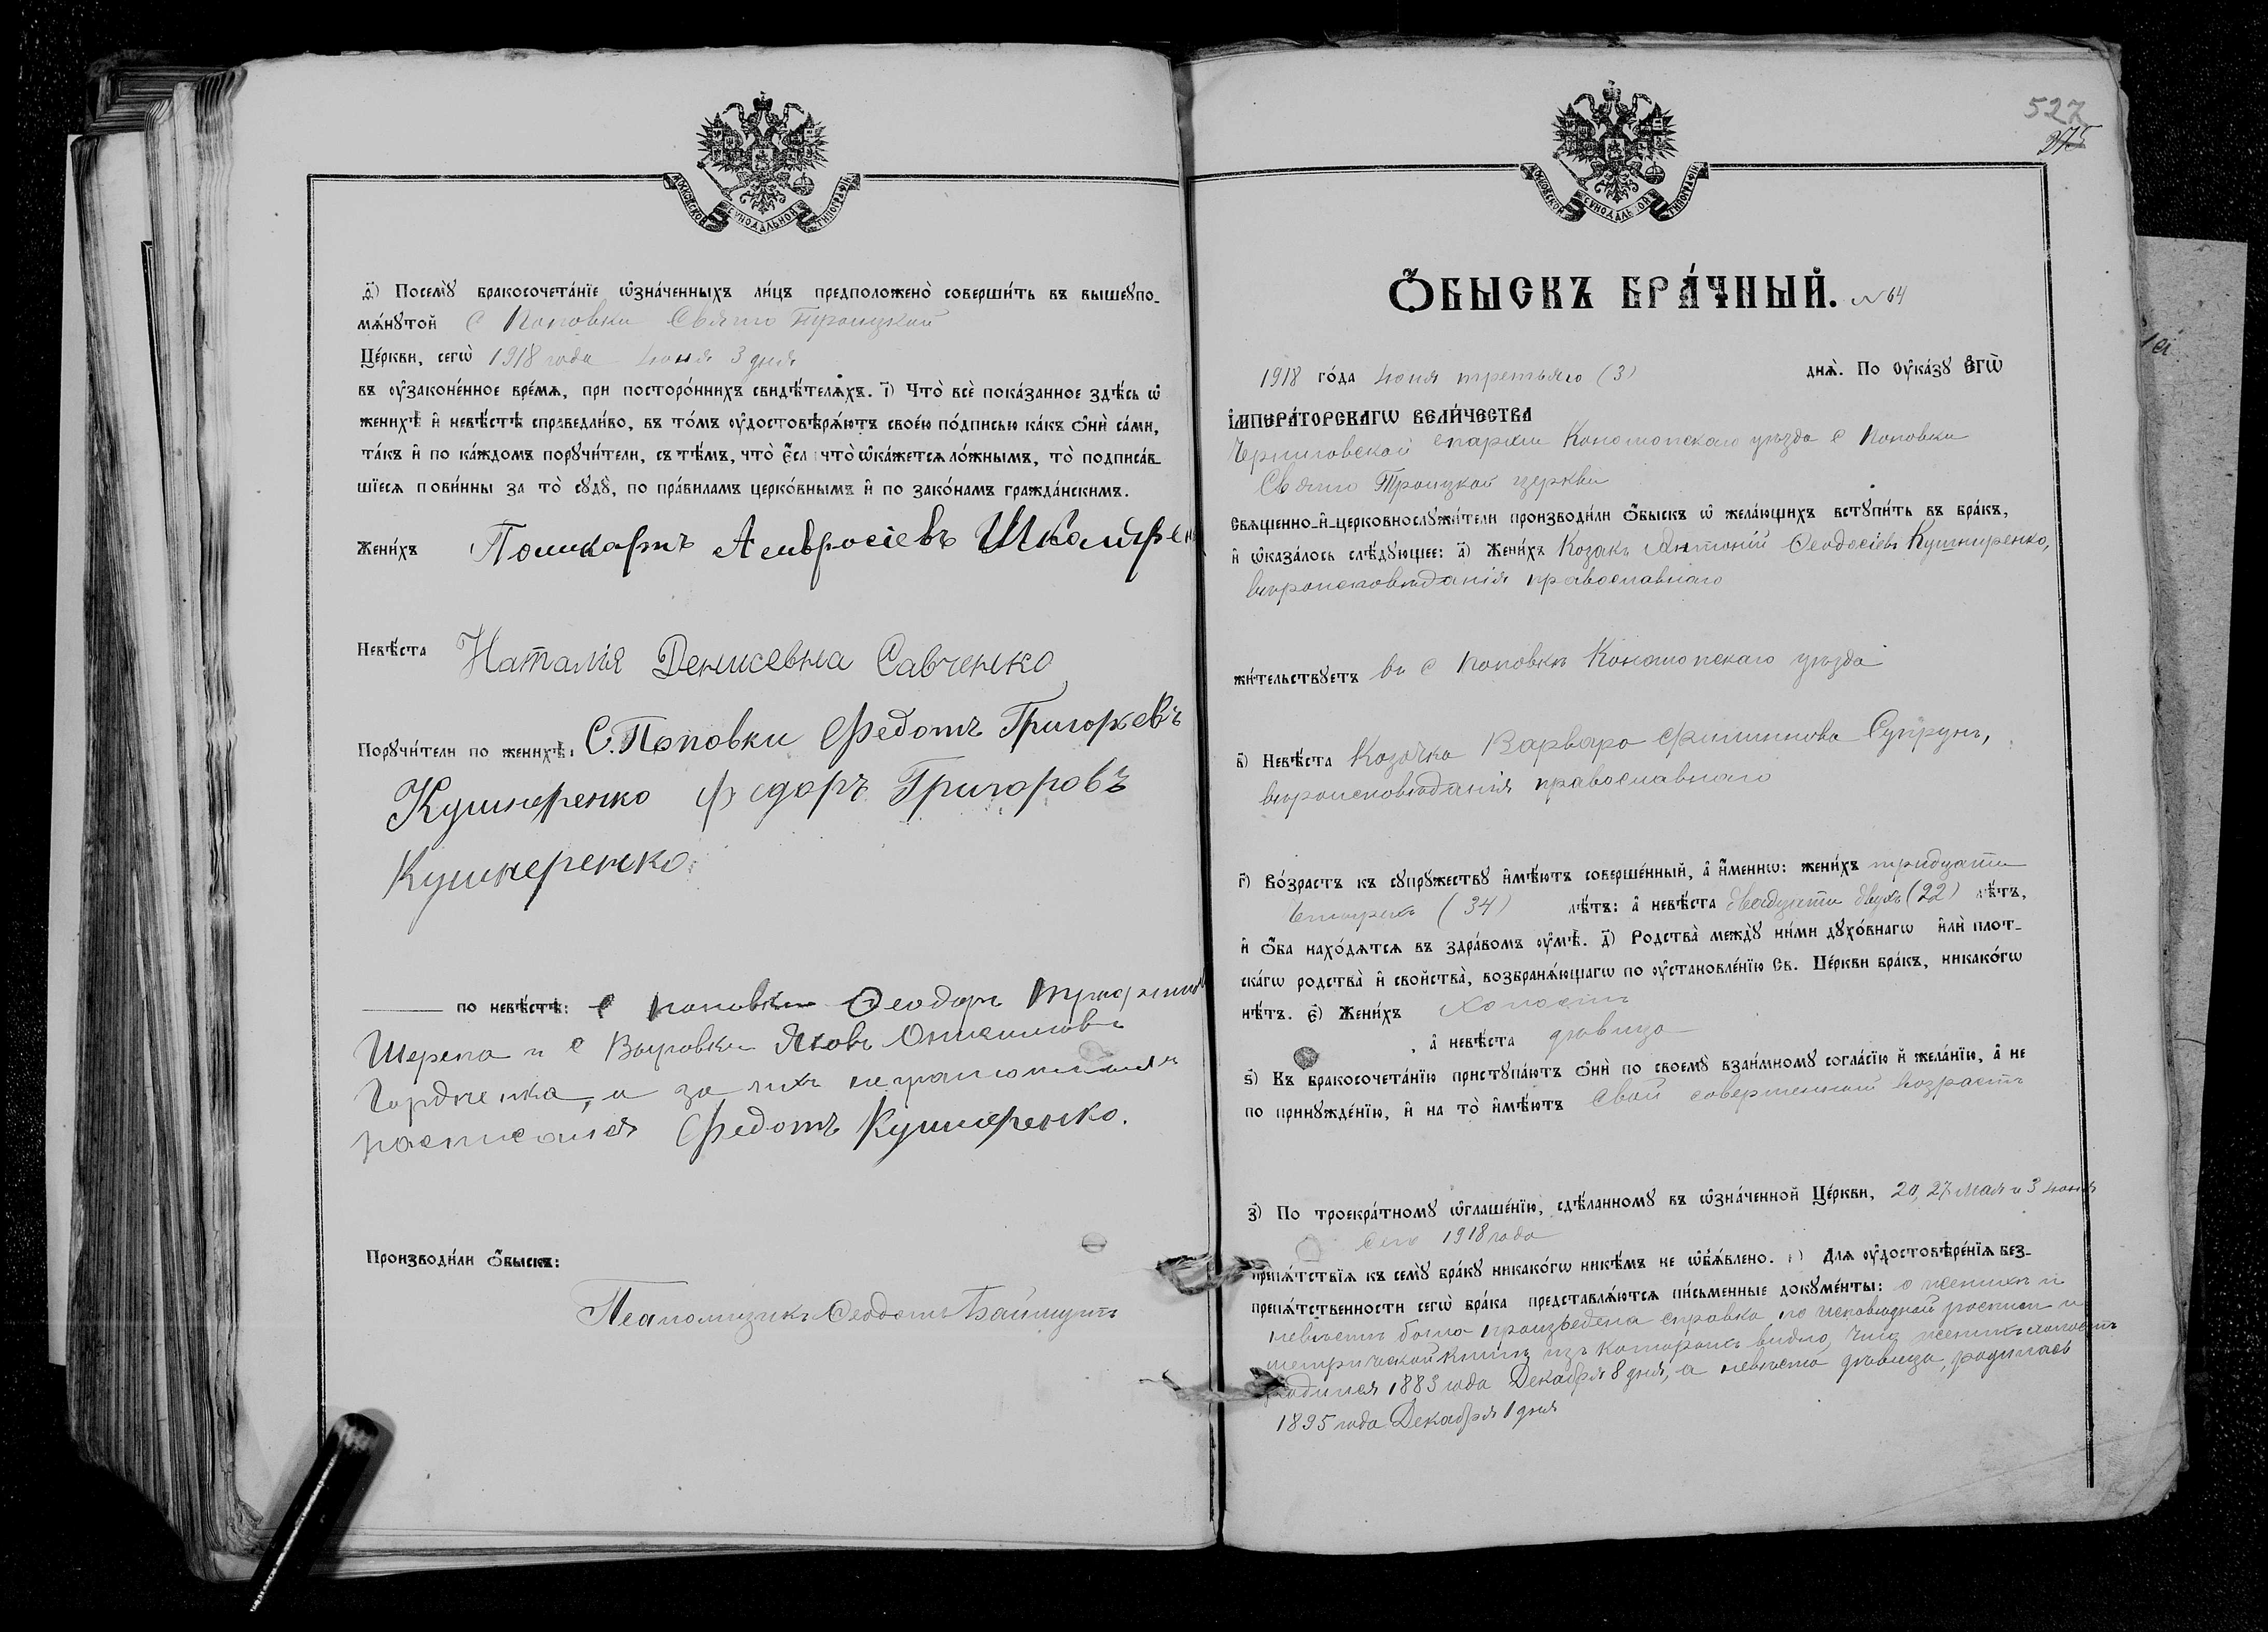 МОСКОВСКОЙ СѴНОДАЛЬНОЙ ТИПОГРАФІИ
д҃і) Посемꙋ̀ бракосочета́нїе ѡ҆зна́ченныхъ ли́цъ предположено̀ соверши́ть въ вышеꙋпо-
мѧ́нꙋтой с Поповки Свято Троицкой
Це́ркви, сегѡ̀ 1918 года Іюня 3 дня
въ ᲂу҆зако́ненное вре́мѧ, при посторо́ннихъ свидѣ́телѧхъ. і҃) Что̀ всѐ пока́занное здѣ́сь ѡ҆
женихѣ̀ и҆ невѣ́стѣ справедли́во, въ то́мъ ᲂу҆достовѣрѧ́ютъ свое́ю по́дписью ка́къ ѻ҆нѝ са́ми,
та́къ и҆ по ка́ждомъ порꙋчи́тели, съ тѣ́мъ, что̀ є҆́сл что̀ ѡ҆ка́жетсѧ ло́жнымъ, то̀ подписа́в-
шїесѧ пови́нны за то̀ сꙋдꙋ̀, по пра́виламъ церко́внымъ и҆ по зако́намъ гражда́нскимъ.
Жени́хъ Поликарпъ Амвросіевъ
Невѣ́ста Наталія Денисевна Савченко
Порꙋчи́тели по женихѣ̀: С. Поповки Федотъ Григорьевъ
Кушнеренко Федоръ Григоровъ
Кушнеренко.
по невѣ́стѣ: с Поповки Феодоръ
Шерепа и с Выровки Яковъ Онисимовъ
Гордіенка, а за ихъ неграмотныхъ
росписался Федотъ Кушнеренко.
Производи́ли ѻ҆́быскъ:
Псаломщикъ Феодотъ
527
275
МОСКОВСКОЙ СѴНОДАЛЬНОЙ ТИПОГРАФІИ
Ѻ҆́БЫСКЪ БРА́ЧНЫЙ. №64
1918 го́да Іюня третьяго (3) днѧ̀. По ᲂу҆ка́зꙋ Є҆гѡ̀
І҆мпера́торскагѡ Вели́чества
Черниговской епархіи Конотопскаго уѣзда с Поповки
Свято Троицкой церкви
Свѧще́нно-и҆-церковнослꙋжи́тели производи́ли ѻ҆́быскъ ѡ҆ жела́ющихъ встꙋпи́ть въ бра́къ,
и҆ ѡ҆каза́лось слѣ́дꙋющее: а҃) Жени́хъ Козакъ Антоній Феодосіевъ Кушниренко,
вѣроисповѣданія православнаго
жи́тельствꙋетъ въ с Поповкѣ Конотопскаго уѣзда
в҃) Невѣ́ста Козачка Варвара Филиппова Супрунъ,
вѣроисповѣданія православнаго
г҃) Во́зрастъ къ сꙋпрꙋ́жествꙋ и҆мѣ́ютъ соверше́нный, а҆ и҆́меннѡ: жени́хъ тридцати
четырехъ (34) лѣ́тъ: а҆ невѣ́ста двадцати двухъ (22) лѣ́тъ,
и҆ ѻ҆́ба нахо́дѧтсѧ въ здра́вомъ ᲂу҆мѣ̀. д҃) Родства̀ междꙋ̀ ни́ми дꙋхо́внагѡ и҆лѝ плот-
ска́гѡ родства̀ и҆ сво́йства̀, возбранѧ́ющагѡ по ᲂу҆становле́нїю Св. Це́ркви бра́къ, никако́гѡ
нѣ́тъ. є҃) Жени́хъ холостъ
, а҆ невѣ́ста дѣвица
ѕ҃) Къ бракосочета́нїю пристꙋпа́ютъ ѻ҆нѝ по своемꙋ̀ взаи́мномꙋ согла́сїю и҆ жела́нїю, а҆ не
по принꙋжде́нїю, и҆ на то̀ и҆мѣ́ютъ свой совершенный возрастъ
з҃) По троекра́тномꙋ ѡ҆глаше́нїю, сдѣ́ланномꙋ въ ѡ҆зна́ченной Це́ркви, 20, 27 мая и 3 Іюня
сего 1918 года
препѧ́тствїѧ къ семꙋ̀ бра́кꙋ никако́гѡ никѣ́мъ не ѡ҆б̾ѧ́влено. и҃) Длѧ ᲂу҆достовѣре́нїѧ без-
препѧ́тственности сегѡ̀ бра́ка представлѧ́ютсѧ пи́сьменные докꙋме́нты: о женихѣ и
невѣстѣ была произведена справка по исповѣдной росписи и
метрической книгѣ изъ которыхъ видно, что женихъ холостъ
родился 1883 года Декабря 8 дня, а невѣста дѣвица, родилась
1895 года Декабря 1 дня